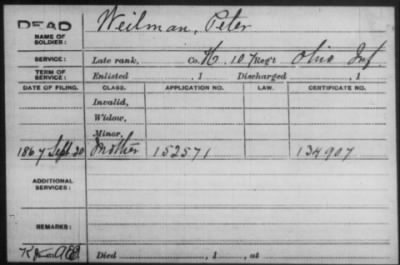 DEAD
NAME OF SOLDIER: Weilman, Peter
SERVICE: Late rank, Co. K, 107 Reg't Ohio Inf.
TERM OF SERVICE: Enlisted , 1 Discharged , 1
DATE OF FILING. CLASS. APPLICATION NO. LAW. CERTIFICATE NO.
Invalid,
Widow,
Minor,
1867 Sept 20 Mother 152571 134907
ADDITIONAL SERVICES:
REMARKS:
Died , 1 , at